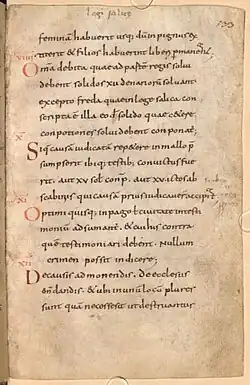 Legis salice
133
feminam habuerit usq; dum in pignus ex
titerit & filios habuerint liberi pmaneant
VIIII Omnia debita quae ad partē regis solui
debent solidos XII denariorum soluant
excepto freda quae in lege salica con
scripta ē illa eod solido quo c&ere
conpositiones solui debent conponat;
X Si quis causā iudicatā rep&ere in mallo p
sumpserit ibiq; testib; conuictus fue
rit. aut XV sol conp. aut XV ictos ab
scabinis qui causam prius iudicauer accipi&
XI Optimi quisq; in pago t ciuitate in testi
monium adsumant. & cui his contra
quē testimoniari debent. Nullum
crimen possit indicere;
XII De causis admonendis. de ecclesiis
emdandis. & ubi in unū locū plures
sunt quā necesse sit ut destruantur